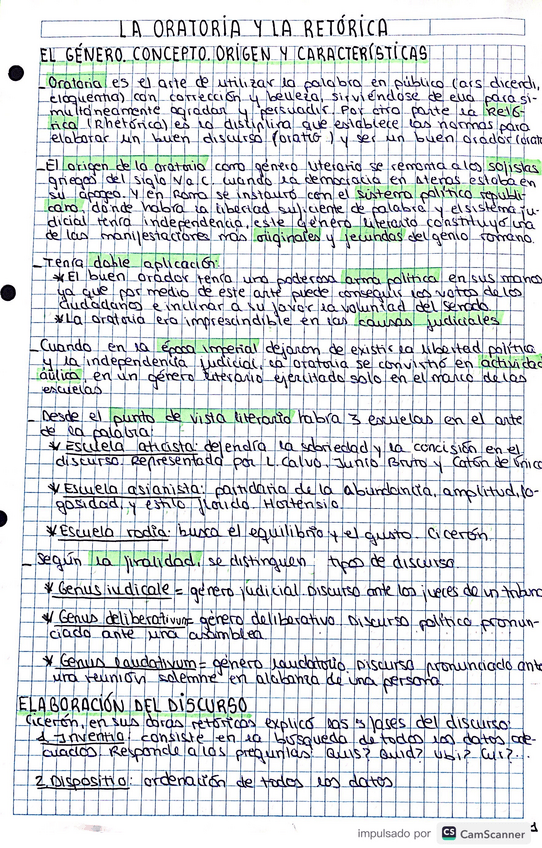 LA ORATORIA Y LA RETÓRICA
EL GÉNERO. CONCEPTO. ORIGEN Y CARACTERÍSTICAS
_Oratoria es el arte de utilizar la palabra en público (ars dicendi,
eloquentia) con corrección y belleza, sirviéndose de ella para si-
multáneamente agradar y persuadir. Por otra parte la Retó-
rica (Rhetórica) es la disciplina que establece las normas para
elaborar un buen discurso (oratio) y ser un buen orador (orator
_El origen de la oratoria como género literario se remonta a los sofistas
griegos del siglo V a.C. cuando la democracia en Atenas estaba en
su apogeo. Y en Roma se instauró con el sistema político republi-
cano, donde había la libertad suficiente de palabra y el sistema ju-
dicial tenía independencia, este género literario constituyó una
de las manifestaciones más originales y fecundas del genio romano.
_Tenía doble aplicación:
*El buen orador tenía una poderosa arma política en sus manos
ya que por medio de este arte puede conseguir los votos de los
ciudadanos e inclinar a su favor la voluntad del senado
*La oratoria era imprescindible en las causas judiciales
_Cuando en la época imperial dejaron de existir la libertad política
y la independencia judicial, la oratoria se convirtió en actividad
áulica, en un género literario ejercitado solo en el marco de las
escuelas
_Desde el punto de vista literario había 3 escuelas en el arte
de la palabra:
* Escuela aticista: defendía la sobriedad y la concisión en el
discurso. Representada por L. Calvo, Junio Bruto y Catón de Único
* Escuela asianista: partidaria de la abundancia, amplitud, fo-
gosidad, y estilo florido. Hortensio.
* Escuela rodia: busca el equilibrio y el gusto. Cicerón.
_ Según la finalidad, se distinguen tipos de discurso.
* Genus iudicale = género judicial. Discurso ante los jueces de un tribunal
* Genus deliberativum= género deliberativo Discurso político pronun-
ciado ante una asamblea
* Genus laudativum = género laudatorio. Discurso pronunciado ante
una reunión solemne en alabanza de una persona.
ELABORACIÓN DEL DISCURSO
Cicerón, en sus obras retóricas explicó las 5 fases del discurso:
1. Inventio: consiste en la búsqueda de todos los datos ade-
cuados. Responde a las preguntas: Quis? Quid? Ubi? Cur?...
2. Dispositio: ordenación de todos los datos
impulsado por CS CamScanner
1